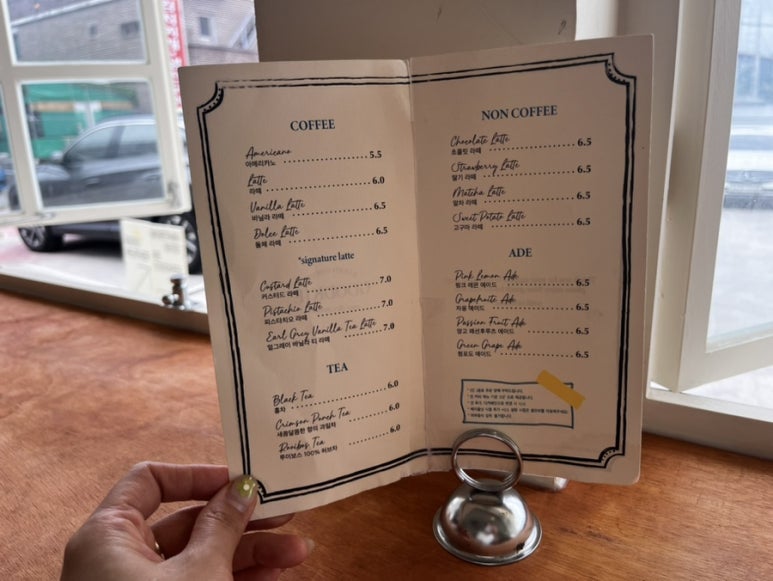 COFFEE
Americano 5.5
아메리카노
Latte 6.0
라떼
Vanilla Latte 6.5
바닐라 라떼
Dolce Latte 6.5
돌체 라떼
*signature latte
Custard Latte 7.0
커스타드 라떼
Pistachio Latte 7.0
피스타치오 라떼
Earl Grey Vanilla Tea Latte 7.0
얼그레이 바닐라 티 라떼
TEA
Black Tea 6.0
홍차
Crimson Punch Tea 6.0
새콤달콤한 향의 과일차
Rooibos Tea 6.0
루이보스 100% 허브차
NON COFFEE
Chocolate Latte 6.5
초콜릿 라떼
Strawberry Latte 6.5
딸기 라떼
Matcha Latte 6.5
말차 라떼
Sweet Potato Latte 6.5
고구마 라떼
ADE
Pink Lemon Ade 6.5
핑크 레몬 에이드
Grapefruite Ade 6.5
자몽 에이드
Passion Fruit Ade 6.5
망고 패션후루츠 에이드
Green Grape Ade 6.5
청포도 에이드